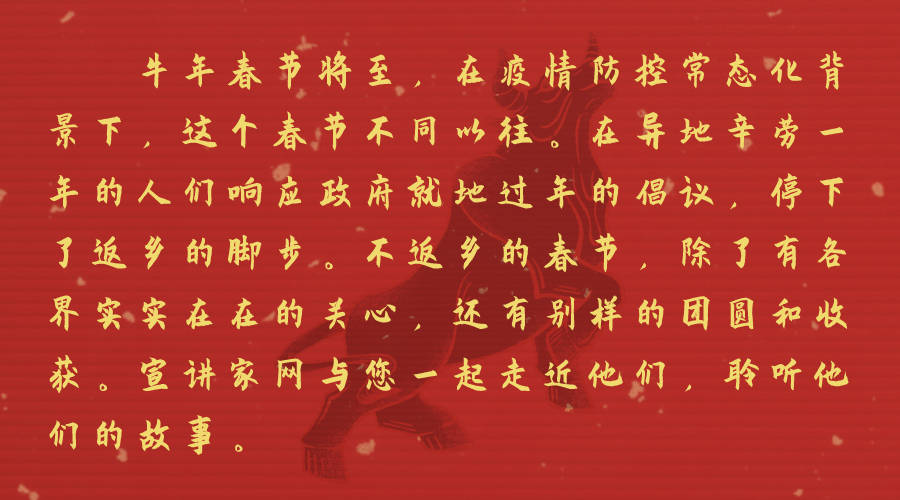 牛年春节将至，在疫情防控常态化背
景下，这个春节不同以往。在异地辛劳一
年的人们响应政府就地过年的倡议，停下
了返乡的脚步。不返乡的春节，除了有各
界实实在在的关心，还有别样的团圆和收
获。宣讲家网与您一起走近他们，聆听他
们的故事。